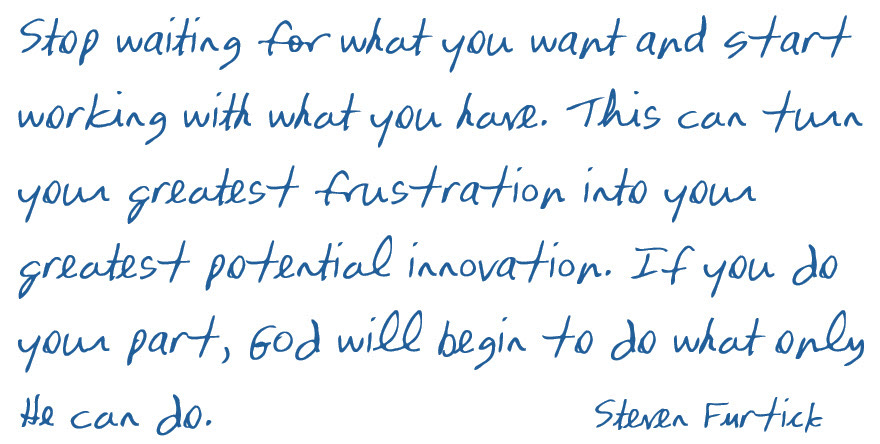 Stop waiting for what you want and start
working with what you have. This can turn
your greatest frustration into your
greatest potential innovation. If you do
your part, God will begin to do what only
He can do.
Steven Furtick